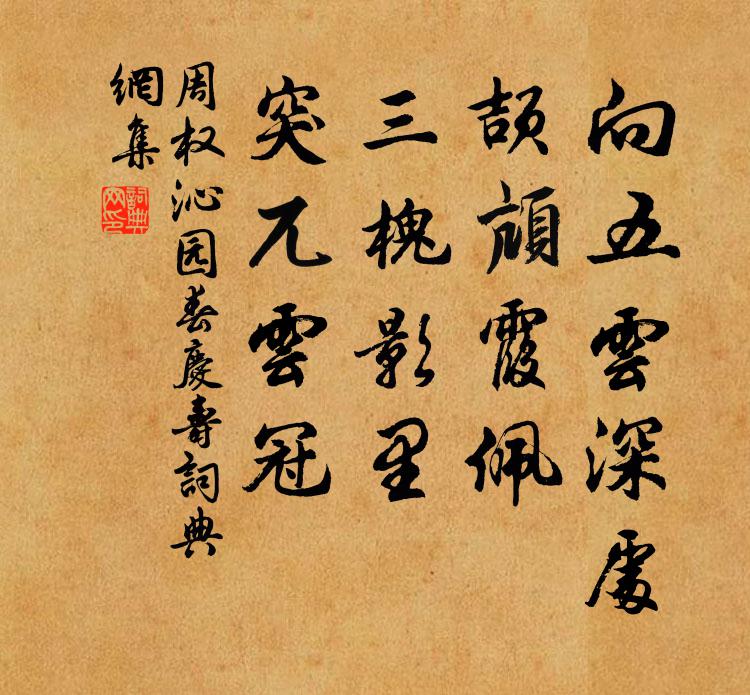 向五雲深處
頡頏霞佩
三槐影里
突兀雲冠
周权沁园春慶壽詞典
網集
詞典
网印